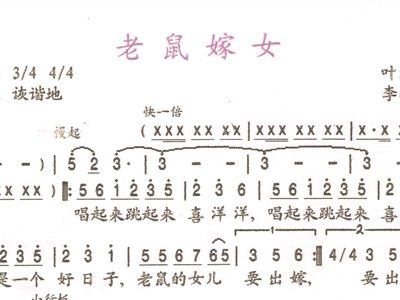 老鼠嫁女
3/4 4/4 叶
诙谐地 李
快一倍
慢起 ( xxx xx xx | xxx xxx | x·x xx
- ) | 5 2 3· | 3 - | 3 - | 3 -
xx xx ) ‖: 5 6 1 2 3 5 | 2 3 0 | 3 2 5 6 1 2 3 5 | 2 3 0
唱起来跳起来 喜洋洋, 唱起来跳起来
1 2 3 5 | 1 2 3 | 5 6 7 6 7 6 5 | 5 3 2 | 3 5 :‖ 4/4 3 5 2 3
是一个 好日子, 老鼠的女儿 要出嫁, 要出